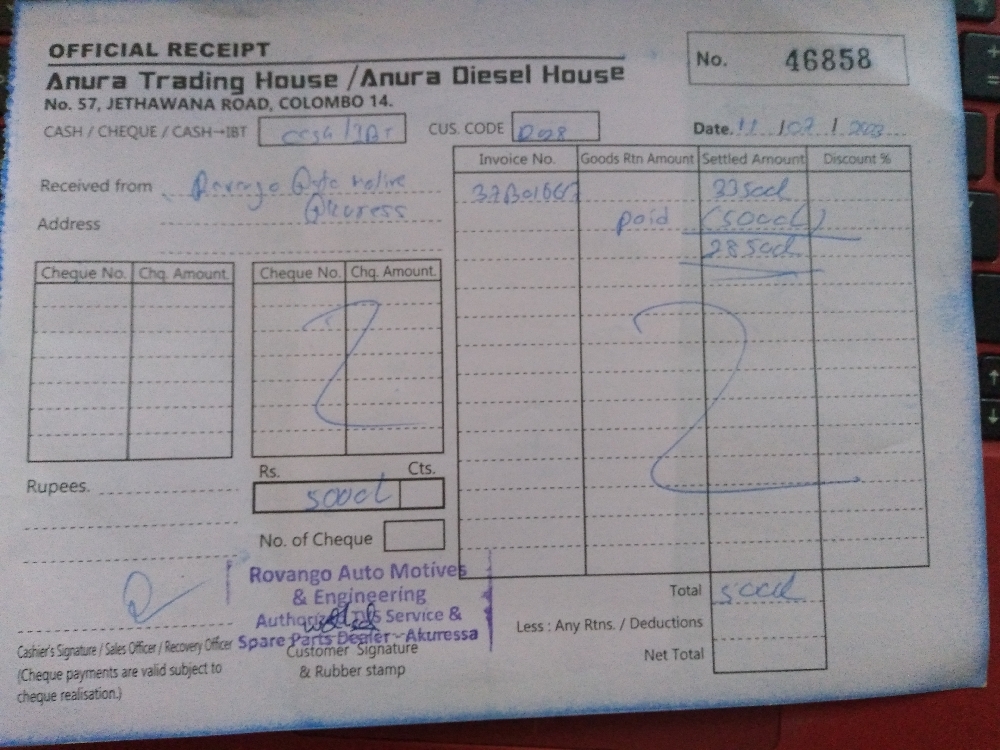 OFFICIAL RECEIPT
Anura Trading House / Anura Diesel House
No. 57, JETHAWANA ROAD, COLOMBO 14.
No. 46858
CASH / CHEQUE / CASH→IBT cash / IBT
CUS. CODE R028
Date. 11 / 07 / 2023
Received from Rovango Auto motive
Address Akuress
Invoice No. Goods Rtn Amount Settled Amount Discount %
33500/
paid (5000/)
28500/
Cheque No. Chq. Amount.
Cheque No. Chq. Amount.
Rupees.
Rs. Cts.
5000/
No. of Cheque
Rovango Auto Motives
& Engineering
Authorized Service &
Spare Parts Dealer - Akuressa
Cashier's Signature / Sales Officer / Recovery Officer
(Cheque payments are valid subject to
cheque realisation.)
Customer Signature
& Rubber stamp
Total 5000/
Less : Any Rtns. / Deductions
Net Total